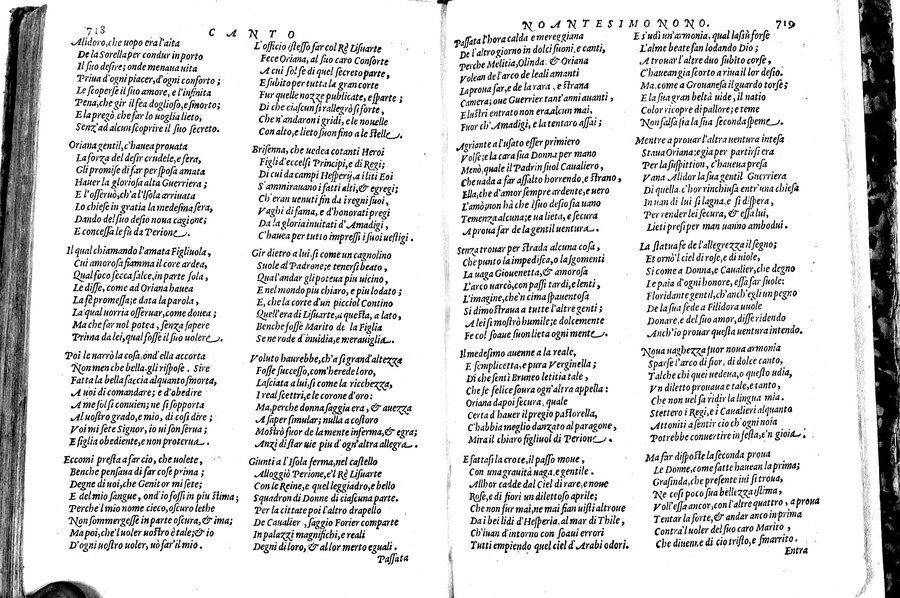 718
CANTO
Alidoro, che uopo era l'aita
De la Sorella per condur in porto
Il suo desire; onde menaua uita
Priua d'ogni piacer, d'ogni conforto;
Le scoperse il suo amore, e l'infinita
Pena, che gir il fea doglioso, e smorto;
E la pregò, che far lo uoglia lieto,
Senz'ad alcun scoprire il suo secreto.
Oriana gentil, c'hauea prouata
La forza del desir crudele, e fera,
Gli promise di far per sposa amata
Hauer la gloriosa alta Guerriera;
E l'osseruò, ch'a l'Isola arriuata
Lo chiese in gratia la medesma sera,
Dando del suo desio noua cagione;
E concessa le fù da Perione.
Il qual chiamando l'amata Figliuola,
Cui amorosa fiamma il core ardea,
Qual foco secca salce, in parte sola,
Le disse, come ad Oriana hauea
La fè promessa; e data la parola,
La qual uorria osseruar, come douea;
Ma che far nol potea, senza sapere
Prima da lei, qual fosse il suo uolere.
Poi le narrò la cosa, ond'ella accorta
Non men che bella, gli rispose. Sire
Fatta la bella faccia alquanto smorta,
A uoi di comandare; e d'obedire
A me sol si conuien; ne si sopporta
Al uostro grado, e mio, di cosi dire;
Voi mi sete Signor, io ui son serua;
E figlia obediente, e non proterua.
Eccomi presta a far cio, che uolete,
Benche pensaua di far cose prima;
Degne di uoi, che Genitor mi sete;
E del mio sangue, ond'io fossi in piu stima;
Perche'l mio nome cieco, oscuro lethe
Non sommergesse in parte oscura, & ima;
Ma poi, che'l uoler uostro è tale; & io
D'ogni uostro uoler, uò far il mio.
L'officio istesso far col Rè Lisuarte
Fece Oriana, al suo caro Consorte
A cui sol se di quel secreto parte,
E subito per tutta la gran corte
Fur quelle nozze publicate, e sparte;
Di che ciascun si rallegrò si forte,
Che n'andaron i gridi, e le nouelle
Con alto, e lieto suon fino a le stelle.
Brisenna, che uedea cotanti Heroi
Figli d'eccelsi Principi, e di Regi;
Di cui da campi Hesperij, a i liti Eoi
S'ammirauano i fatti alti, & egregi;
Ch'eran uenuti fin da i regni suoi,
Vaghi di fama, e d'honorati pregi
Da la gloria inuitati d'Amadigi,
C'hauea per tutto impressi i suoi uestigi.
Gir dietro a lui, si come un cagnolino
Suole al Padrone; e tenersi beato,
Qual'andar gli potea piu uicino,
E nel mondo piu chiaro, e piu lodato;
E, che la corte d'un picciol Contino
Quell'era di Lisuarte, a questa, a lato,
Benche fosse Marito de la Figlia
Se ne rode d'inuidia, e merauiglia.
Voluto haurebbe, ch'a si grand'altezza
Fosse successo, com'herede loro,
Lasciata a lui, si come la ricchezza,
I real scettri, e le corone d'oro:
Ma, perche donna saggia era, & auezza
A saper simular; nulla a costoro
Mostrò fuor de la mente inferma, & egra;
Anzi di star uie piu d'ogn'altra allegra.
Giunti a l'Isola ferma, nel castello
Alloggiò Perione, e'l Rè Lisuarte
Con le Reine, e quel leggiadro, e bello
Squadron di Donne di ciascuna parte.
Per la cittate poi l'altro drapello
De Caualier, saggio Forier comparte
In palazzi magnifichi, e reali
Degni di loro, & al lor merto eguali.
Passata
NOANTESIMONONO.
719
Passata l'hora calda e mereggiana
De l'altro giorno in dolci suoni, e canti,
Perche Melitia, Olinda, & Oriana
Volean de l'arco de leali amanti
La proua far, e de la rara, e strana
Camera; oue Guerrier tant'anni auanti,
E lustri entrato non era alcun mai,
Fuor ch'Amadigi, e la tentaro assai;
Agriante a l'usato esser primiero
Volse; e la cara sua Donna per mano
Menò, quale il Padrin suol Caualiero,
Che uada a far assalto horrendo, e strano,
Ella, che d'amor sempre ardente, e uero
L'amò; non hà che suo desio sia uano
Temenza alcuna; e ua lieta, e secura
A prouar far de la gentil uentura.
Senza trouar per strada alcuna cosa,
Che punto la impedisca, o la sgomenti
La uaga Giouenetta, & amorosa
L'arco uarcò, con passi tardi, e lenti,
L'imagine, che'n cima spauentosa
Si dimostraua a tutte l'altre genti;
A lei si mostrò humile; e dolcemente
Fe col soaue suon lieta ogni mente.
Il medesimo auenne a la reale,
E semplicetta, e pura Verginella;
Di che sentì Bruneo letitia tale,
Che se felice soura ogn'altra appella:
Oriana da poi secura, quale
Certa d'hauer il pregio pastorella,
C'habbia meglio danzato al paragone,
Mira il chiaro figliuol di Perione.
E fattasi la croce, il passo moue,
Con una grauità uaga, e gentile.
Allhor cadde dal Ciel di rare, e noue
Rose, e di fiori un dilettoso aprile;
Che non fur mai, ne mai fian uisti altroue
Da i bei lidi d'Hesperia, al mar di Thile,
Ch'iuan d'intorno con soaui errori
Tutti empiendo quel ciel d'Arabi odori.
E s'udì un'armonia, qual là sù forse
L'alme beate fan lodando Dio;
A trouar l'altre duo subito corse,
C'haueangia scorto a riua il lor desio.
Ma, come a Grouanesa il guardo torse;
E la sua gran beltà uide, il natio
Color ricopre di pallore; e teme
Non falsa sia la sua seconda speme.
Mentre a prouar l'altra uentura intesa
Staua Oriana; e gia per partirsi era
Per la suspittion, c'haueua presa
Vana Alidor la sua gentil Guerriera
Di quella, c'hor rinchiusa entr'una chiesa
In uan di lui si lagna, e si dispera,
Per render lei secura, & essa lui,
Lieti presi per man uanno ambodui.
La statua fe de l'allegrezza il segno;
Et ornò'l ciel di rose, e di uiole,
Si come a Donna, e Caualier, che degno
Le paia d'ogni honore, essa far suole:
Floridante gentil, ch'anch'egli un pegno
De la sua fede a Filidora uuole
Donare, e del suo amor, disse ridendo
Anch'io prouar questa uentura intendo.
Noua uaghezza fuor noua armonia
Sparse l'arco di fior, di dolce canto,
Talche chi quei uedeua, o questo udia,
Vn diletto prouaua e tale, e tanto,
Che non uel sa ridir la lingua mia.
Stettero i Regi, e i Caualieri alquanto
Attoniti a sentir cio ch'ogni noia
Potrebbe conuertire in festa, e'n gioia.
Ma far disposte la seconda proua
Le Donne, come fatte hauean la prima;
Grasinda, che presente iui si troua,
Ne cosi poco sua bellezza istima,
Voll'essa ancor, con l'altre quattro, a proua
Tentar la sorte, & andar anco in prima
Contra'l uoler del suo caro Marito,
Che diuenne di cio tristo, e smarrito.
Entra